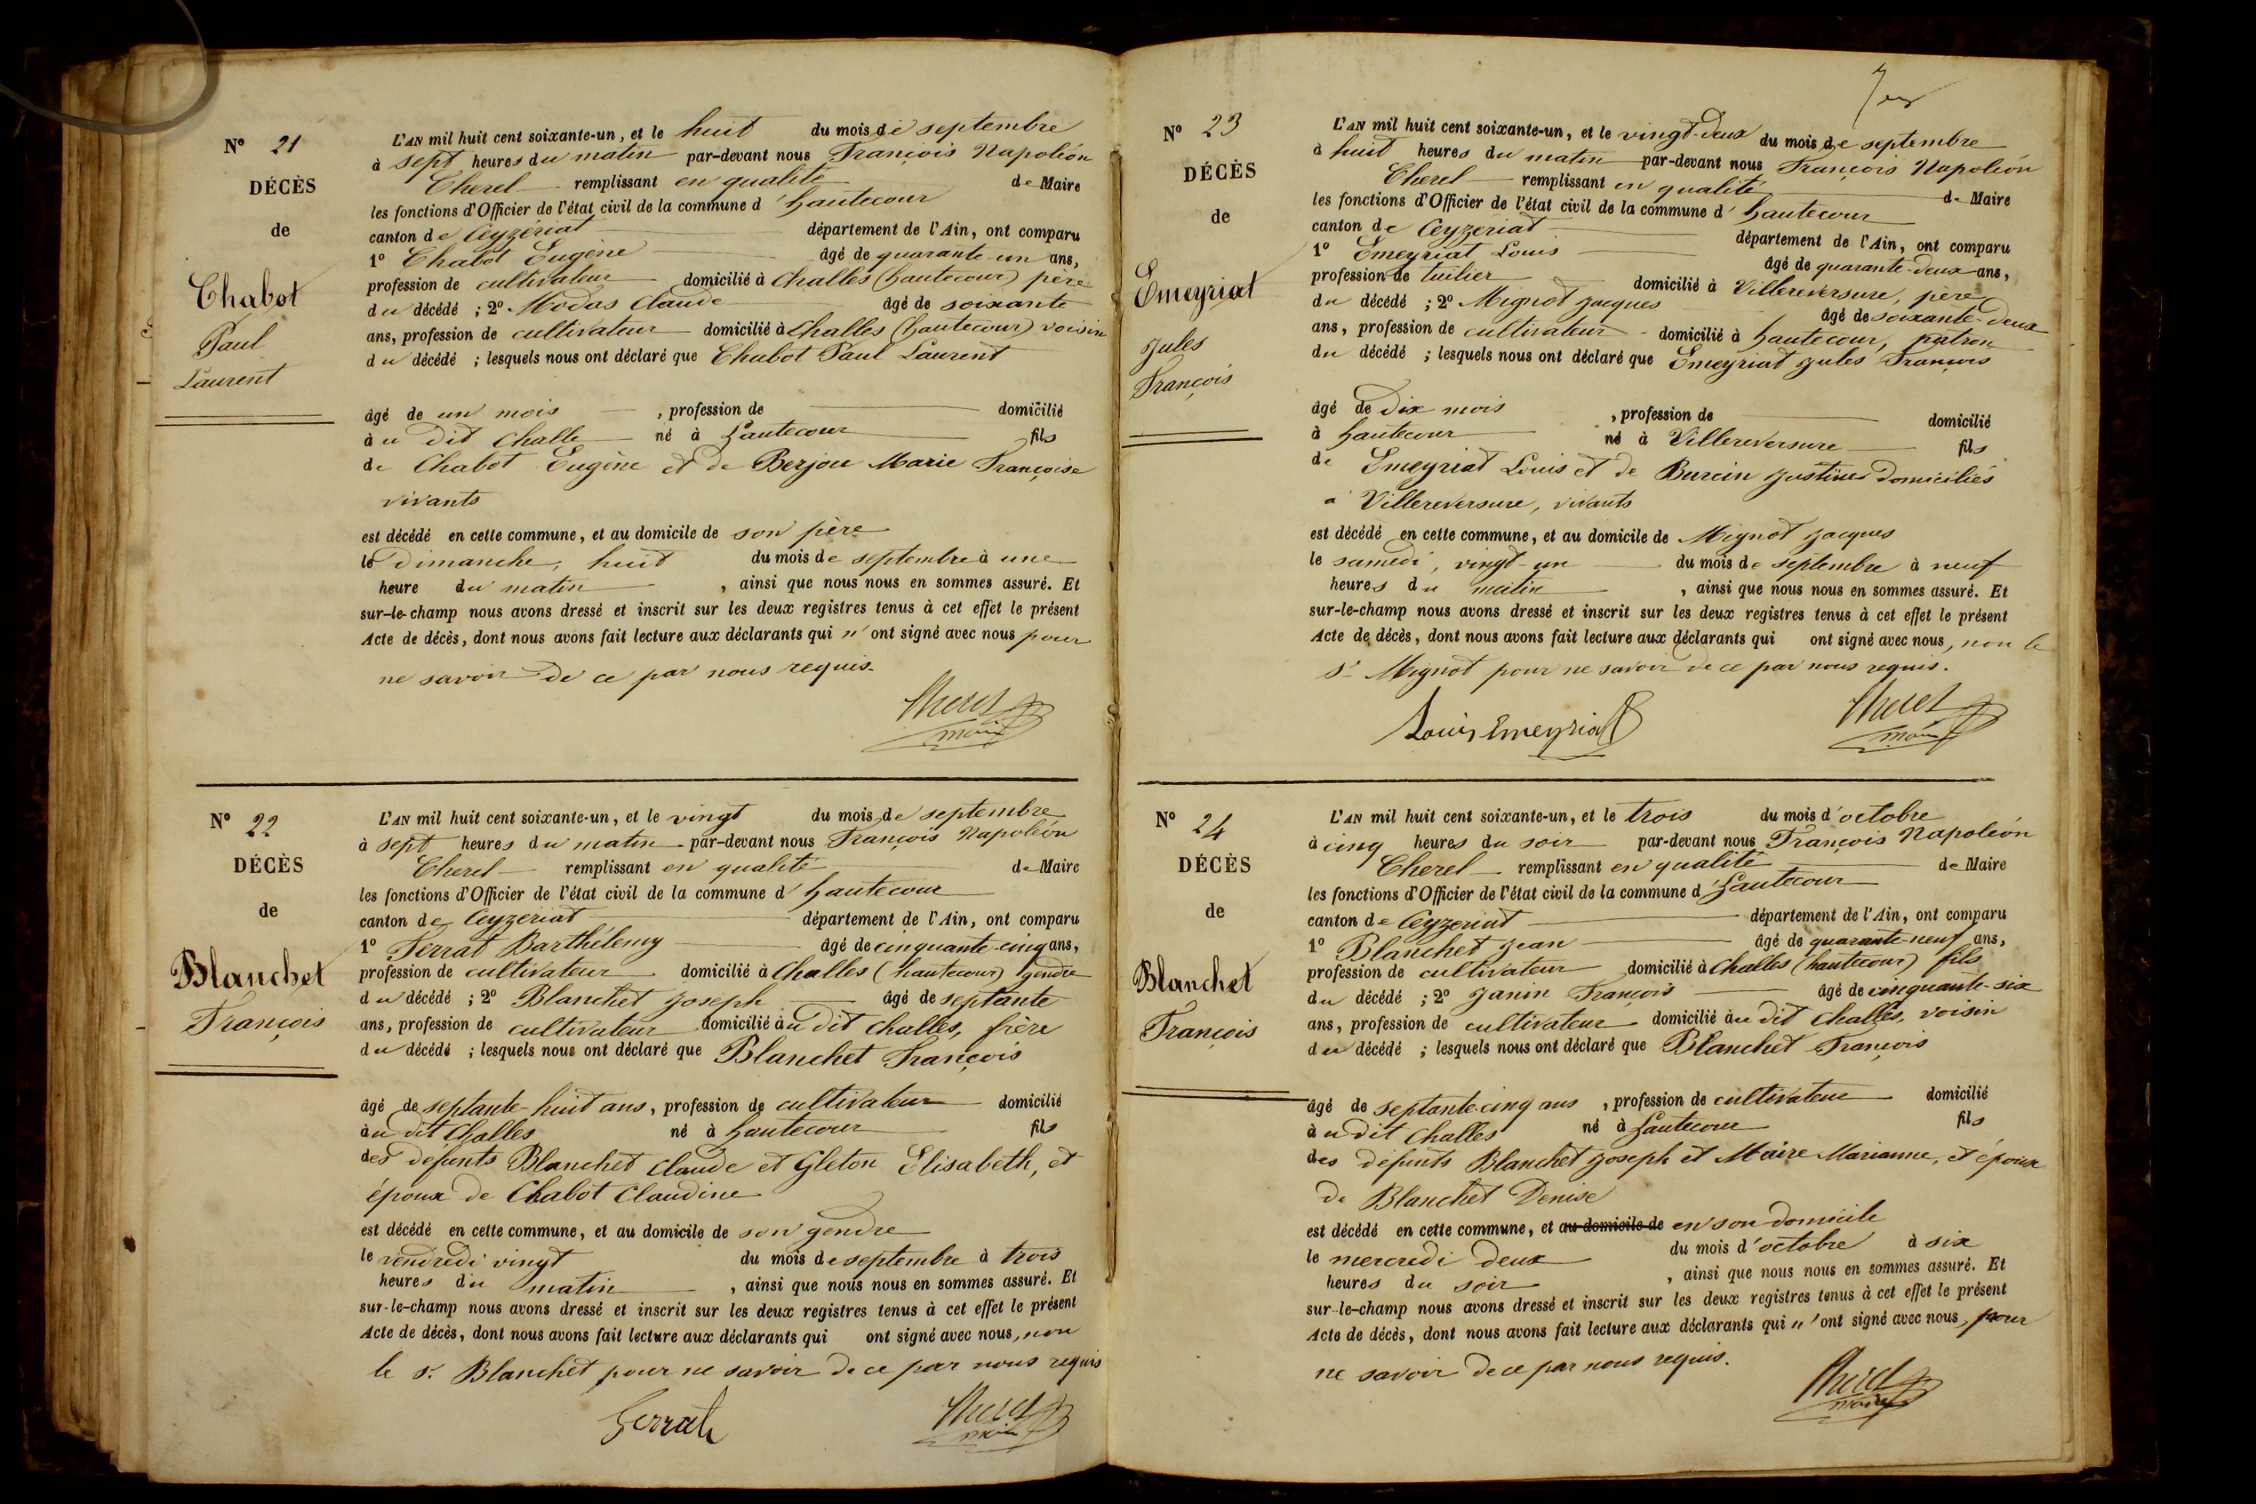 N° 21
DÉCÈS
de
Chabot
Paul
Laurent
L'AN mil huit cent soixante-un, et le huit du mois de septembre
à sept heures du matin par-devant nous François Napoléon
Cherel remplissant en qualité de Maire
les fonctions d'Officier de l'état civil de la commune d'hautecour
canton de Ceyzériat département de l'Ain, ont comparu
1° Chabot Eugène âgé de quarante-un ans,
profession de cultivateur domicilié à Challes (hautecour) père
du décédé ; 2° Modas Claude âgé de soixante
ans, profession de cultivateur domicilié à Challes (hautecour) voisin
du décédé ; lesquels nous ont déclaré que Chabot Paul Laurent
âgé de un mois , profession de domicilié
au dit Challe né à hautecour fils
de Chabot Eugène et de Berjou Marie Françoise
vivants
est décédé en cette commune, et au domicile de son père
le dimanche, huit du mois de septembre à une
heure du matin , ainsi que nous nous en sommes assuré. Et
sur-le-champ nous avons dressé et inscrit sur les deux registres tenus à cet effet le présent
Acte de décès, dont nous avons fait lecture aux déclarants qui n'ont signé avec nous pour
ne savoir de ce par nous requis.
Cherel
maire
N° 22
DÉCÈS
de
Blanchet
François
L'AN mil huit cent soixante-un, et le vingt du mois de septembre
à sept heures du matin par-devant nous François Napoléon
Cherel remplissant en qualité de Maire
les fonctions d'Officier de l'état civil de la commune d'hautecour
canton de Ceyzériat département de l'Ain, ont comparu
1° Ferrat Barthélemy âgé de cinquante-cinq ans,
profession de cultivateur domicilié à Challes (hautecour) gendre
du décédé ; 2° Blanchet Joseph âgé de septante
ans, profession de cultivateur domicilié au dit Challes, frère
du décédé ; lesquels nous ont déclaré que Blanchet François
âgé de septante-huit ans, profession de cultivateur domicilié
au dit Challes né à hautecour fils
des défunts Blanchet Claude et Gleton Elisabeth, et
époux de Chabot Claudine
est décédé en cette commune, et au domicile de son gendre
le vendredi vingt du mois de septembre à trois
heures du matin , ainsi que nous nous en sommes assuré. Et
sur-le-champ nous avons dressé et inscrit sur les deux registres tenus à cet effet le présent
Acte de décès, dont nous avons fait lecture aux déclarants qui ont signé avec nous, non
le sr. Blanchet pour ne savoir de ce par nous requis
Ferrat
Cherel
maire
N° 23
DÉCÈS
de
Emeyriat
Jules
François
L'AN mil huit cent soixante-un, et le vingt-deux du mois de septembre
à huit heures du matin par-devant nous François Napoléon
Cherel remplissant en qualité de Maire
les fonctions d'Officier de l'état civil de la commune d'hautecour
canton de Ceyzériat département de l'Ain, ont comparu
1° Emeyriat Louis âgé de quarante-deux ans,
profession de tuilier domicilié à Villereversure, père
du décédé ; 2° Mignot Jacques âgé de soixante-deux
ans, profession de cultivateur domicilié à hautecour, patron
du décédé ; lesquels nous ont déclaré que Emeyriat Jules François
âgé de dix mois , profession de domicilié
à hautecour né à Villereversure fils
de Emeyriat Louis et de Burcin Justine domiciliés
à Villereversure, vivants
est décédé en cette commune, et au domicile de Mignot Jacques
le samedi, vingt-un du mois de septembre à neuf
heures du matin , ainsi que nous nous en sommes assuré. Et
sur-le-champ nous avons dressé et inscrit sur les deux registres tenus à cet effet le présent
Acte de décès, dont nous avons fait lecture aux déclarants qui ont signé avec nous, non le
sr. Mignot pour ne savoir de ce par nous requis.
Louis Emeyriat
Cherel
maire
N° 24
DÉCÈS
de
Blanchet
François
L'AN mil huit cent soixante-un, et le trois du mois d'octobre
à cinq heures du soir par-devant nous François Napoléon
Cherel remplissant en qualité de Maire
les fonctions d'Officier de l'état civil de la commune d'hautecour
canton de Ceyzeriat département de l'Ain, ont comparu
1° Blanchet Jean âgé de quarante-neuf ans,
profession de cultivateur domicilié à Challes (hautecour) fils
du décédé ; 2° Janin François âgé de cinquante-six
ans, profession de cultivateur domicilié au dit Challes, voisin
du décédé ; lesquels nous ont déclaré que Blanchet François
âgé de septante-cinq ans , profession de cultivateur domicilié
au dit Challes né à hautecour fils
des défunts Blanchet Joseph et Maire Marianne, et époux
de Blanchet Denise
est décédé en cette commune, et au domicile de en son domicile
le mercredi deux du mois d'octobre à six
heures du soir , ainsi que nous nous en sommes assuré. Et
sur-le-champ nous avons dressé et inscrit sur les deux registres tenus à cet effet le présent
Acte de décès, dont nous avons fait lecture aux déclarants qui n'ont signé avec nous, pour
ne savoir de ce par nous requis.
Cherel
maire